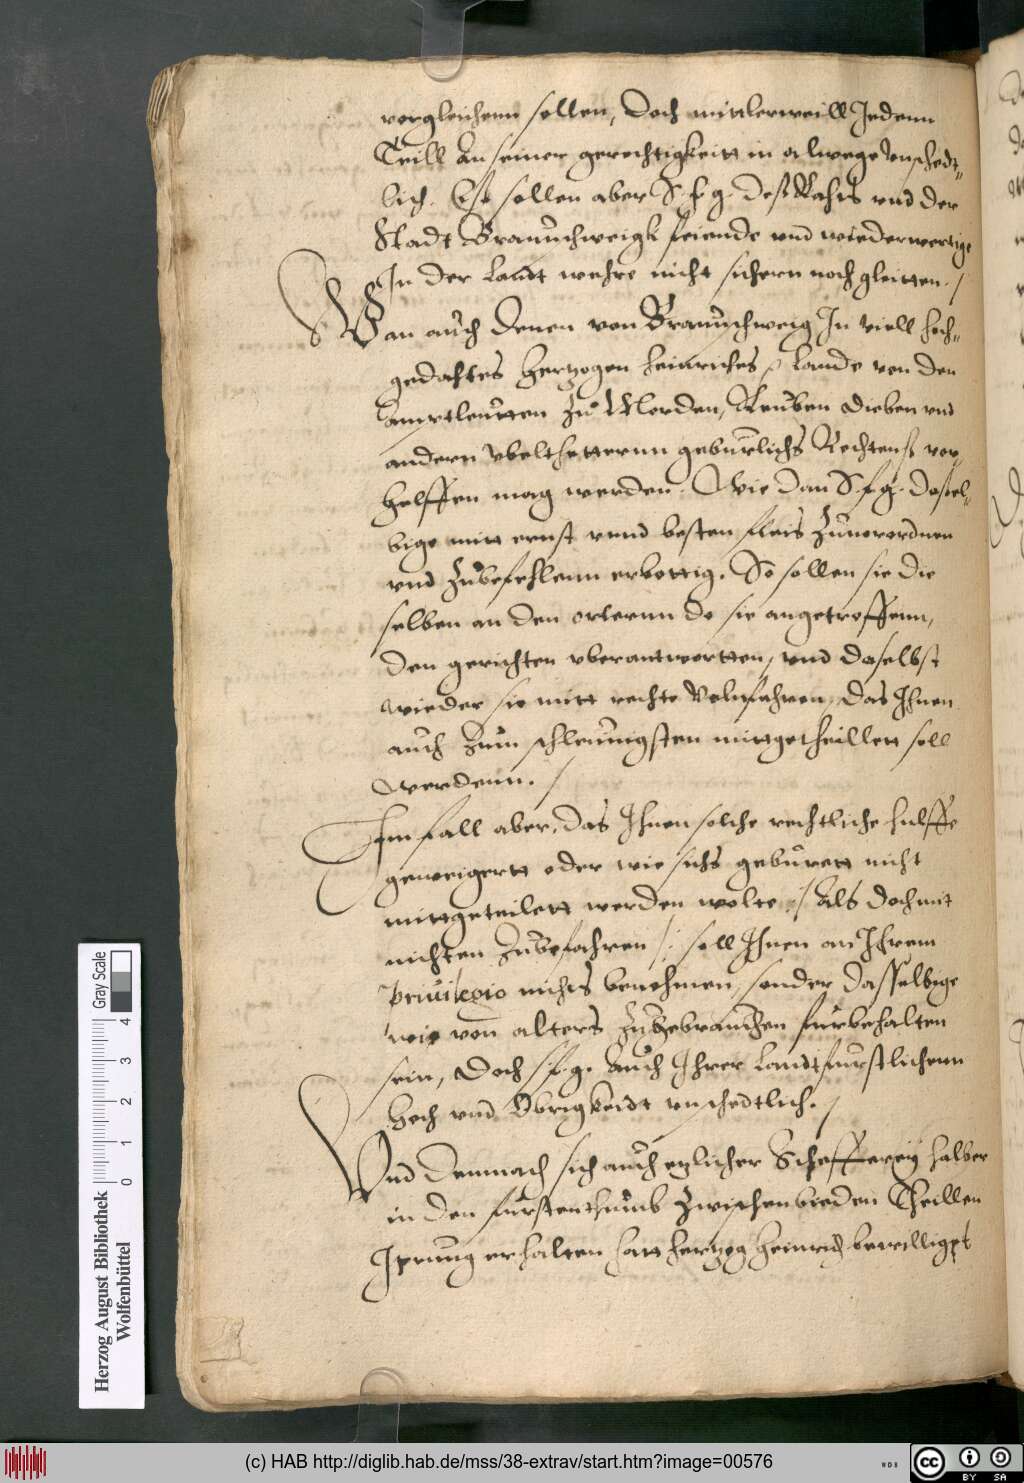 vergleichenn sollen, Doch mittlerweill Jedenn
Teill an seiner gerechtigkeitt in alwege vnschedt-
lich. Es sollen aber S. f. g. deß Rahts vnd der
Stadt Braunschweigk feiende vnd wiederwertige
In der Landt wehre nicht sichern noch gleitten. /
Wan auch denen von Braunschweig In viell hoch-
gedachtes Hertzogen Heinriches, Lande von den
amptleutten zu Morden, Reuben Dieben vnd
andern vbelthetternn geburlichs Rechtenß ver
helffen mag werden. Wie dan S. f. g. dassel-
bige mitt ernst vnnd besten fleis zuuerordnen
vnd zubefehlenn erbottig. So sollen sie die
selben an den orternn do sie angetroffenn,
den gerichten vberantwortten, vnd daselbst
wieder sie mitt rechte volnfahren, Das Ihnen
auch zum schleunigsten mittgetheillett soll
werdenn. /
Im fall aber, das Ihnen solche rechtliche hulffe
geweigertt oder wie sichs geburett nicht
mittgeteilett werden wolte / Als doch mit
nichten zubefahren / soll Ihnen an Ihrem
Priuilegio nichts benehmen, sonder dasselbige
wie von alters zugebrauchen furbehalten
sein, Doch s. f. g. auch Ihrer Landtfurstlichenn
Hoch vnd Obrigkeidt vnschedtlich. /
Vnd demnach sich auch etzlicher Schefferey halber
in den furstenthumb zwischen bieden Theillen
Irrung erhalten hatt hertzog Heinrich bewilligpt
Herzog August Bibliothek
Wolfenbüttel
0 1 2 3 4
Gray Scale
(c) HAB http://diglib.hab.de/mss/38-extrav/start.htm?image=00576
WDB
cc BY SA